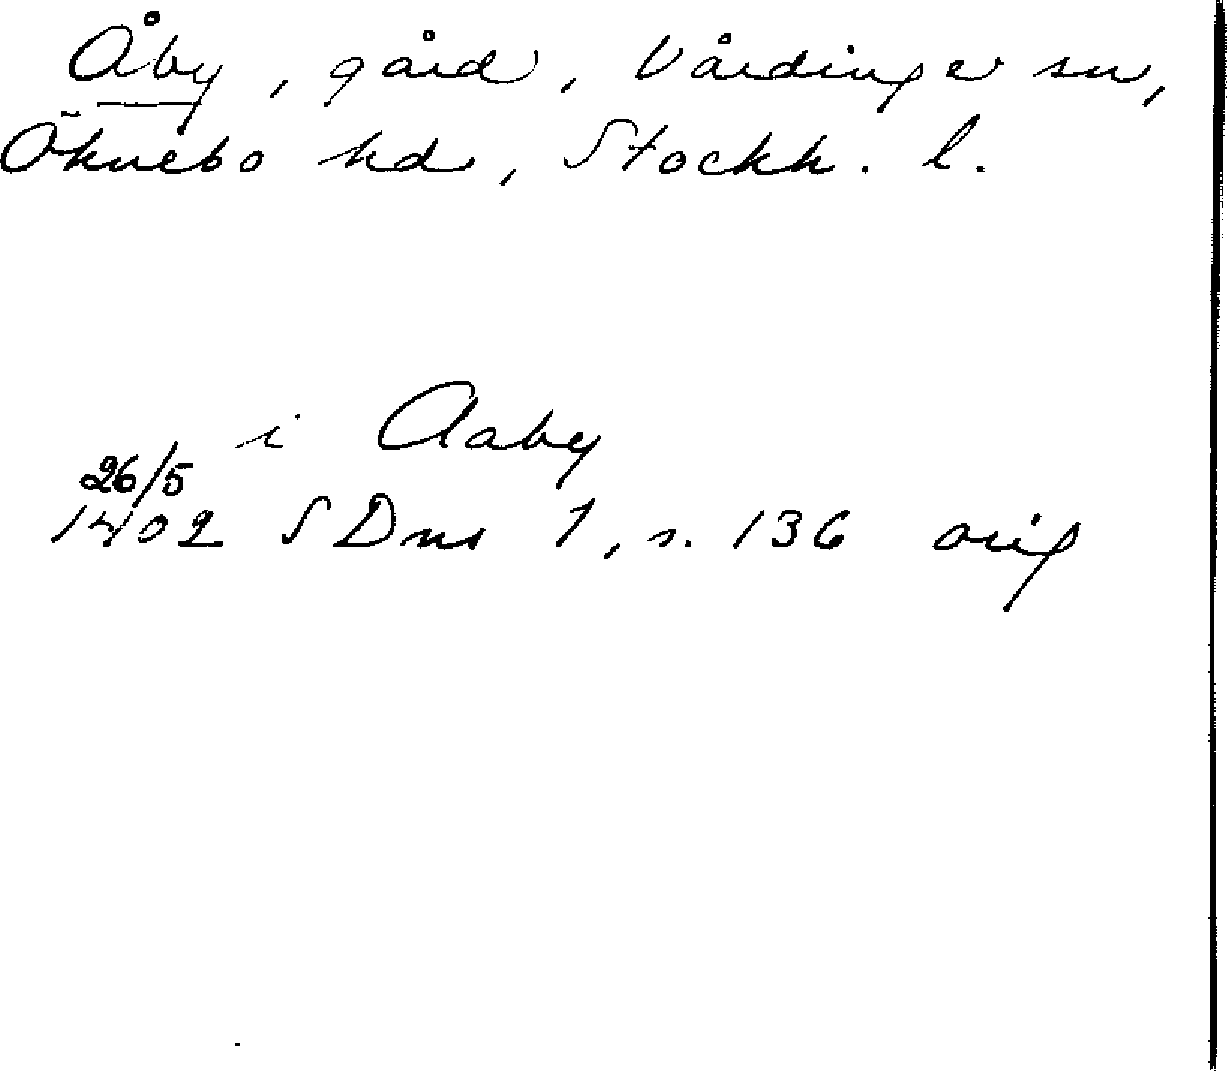 Åby, gård, Vårdinge sn,
Öknebo hd, Stockh. l.
i Aaby
26/5
1402 SDns 1, s. 136 orig